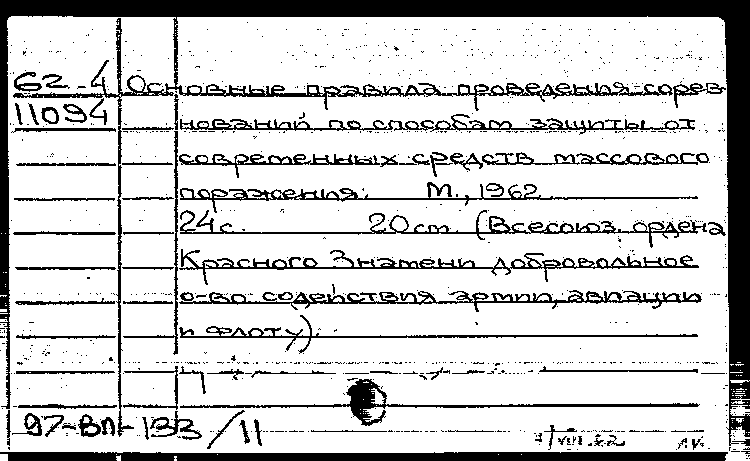 62-4 Основные правила проведения сорев-
11094 нований по способам защиты от
современных средств массового
поражения. М., 1962.
24с. 20см. (Всесоюз. ордена
Красного Знамени добровольное
о-во содействия армии, авиации
и флоту).
97-ВП-133/11